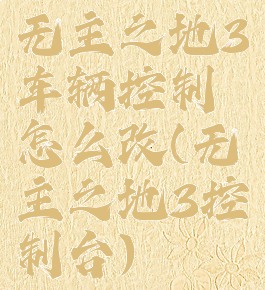 无主之地3
车辆控制
怎么改(无
主之地3控
制台)